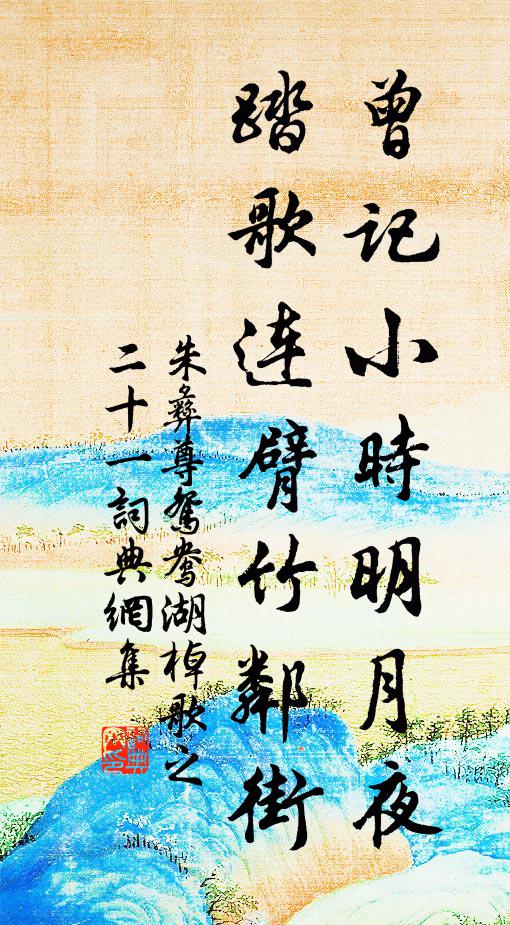 曾记小時明月夜
踏歌连臂竹鄰街
朱彝尊鴛鴦湖棹歌之
二十一詞典網集